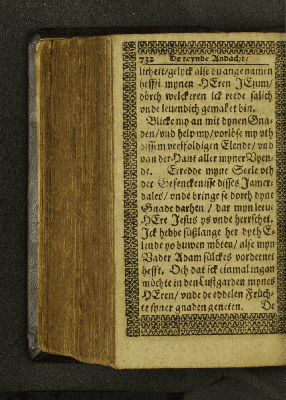 732 De reynde Andacht/
licheit/gelyck alse du angenamen
hefft mynen HEren JEsum/
dörch welckeren ick rede salich
vnde leuendich gemaket bin.
Blicke my an mit dynen Gna-
den/vnd help my/vorlöse my vth
dissem veelfoldigen Elende/ vnd
van der Hant aller myner Vyen-
de. Erredde myne Seele vth
der Gefenckenisse disses Jamer-
dales/ vnde bringe se dorch dyne
Gnade darhen/ dar myn leue
HEre Jesus ys vnde herrschet.
Ick hebbe süßlange her dyth E-
lende ys buwen möten/ alse myn
Vader Adam sülckes vordeenet
hefft. Och dat ick einmal ingan
möchte in den Lustgarden mynes
HEren/ vnde de eddelen Früch-
te syner gnaden geneten. De